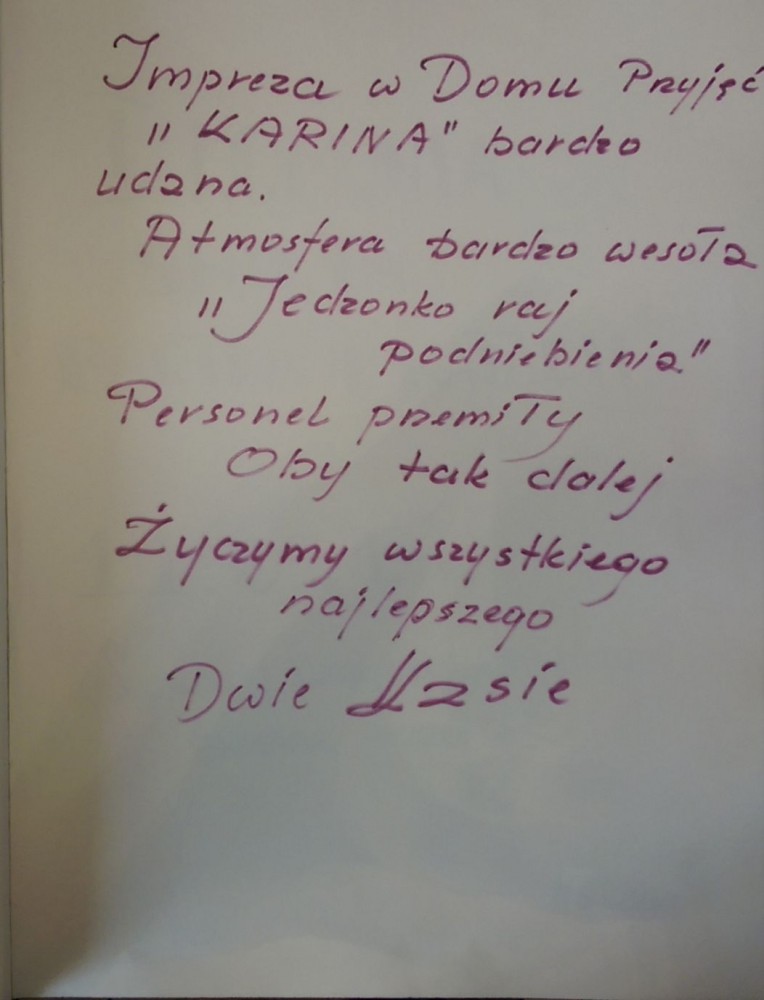 Impreza w Domu Przyjęć
„KARINA" bardzo
udana.
Atmosfera bardzo wesoła
„Jedzonko raj
podniebienia"
Personel przemiły
Oby tak dalej
Życzymy wszystkiego
najlepszego
Dwie Kasie